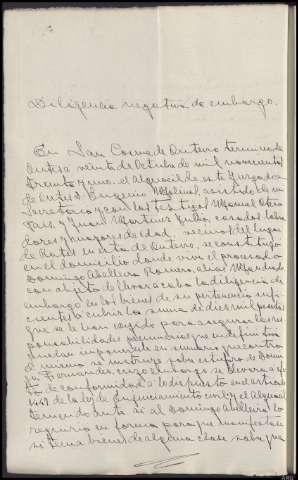 Diligencia negativa de embargo.
En San Cosme de Outeiro termino de
Outes a veinte de Octubre de mil novecientos
treinta y uno. el Alguacil de este Juzgado
de Outes Eugenio asistido de mi
Secretario y con los testigos Manuel Otero
y Juan Martinez casados labra
dores y mayores de edad vecinos del lugar
de de Outeiro, se constituyó
en el domicilio donde vive el procesado
Domingo Abelleira Romero, alias
con objeto de llevar a cabo la diligencia de
embargo en los bienes de su pertenencia sufi
cientes a cubrir la suma de diez mil pesetas
que se le han exigido para asegurar las res
ponsabilidades pecuniarias que en definitiva
puedan imponersele en sumario que contra
el mismo se instruye sobre estupro de
Fernandez, cuyo embargo se llevará a efec
to de conformidad a lo dispuesto en el articulo
de la ley de Enjuiciamiento civil y el Alguacil
teniendo ante si al Domingo Abelleira lo
requirió en forma para que manifestase
si tenia bienes de alguna clase sobre que